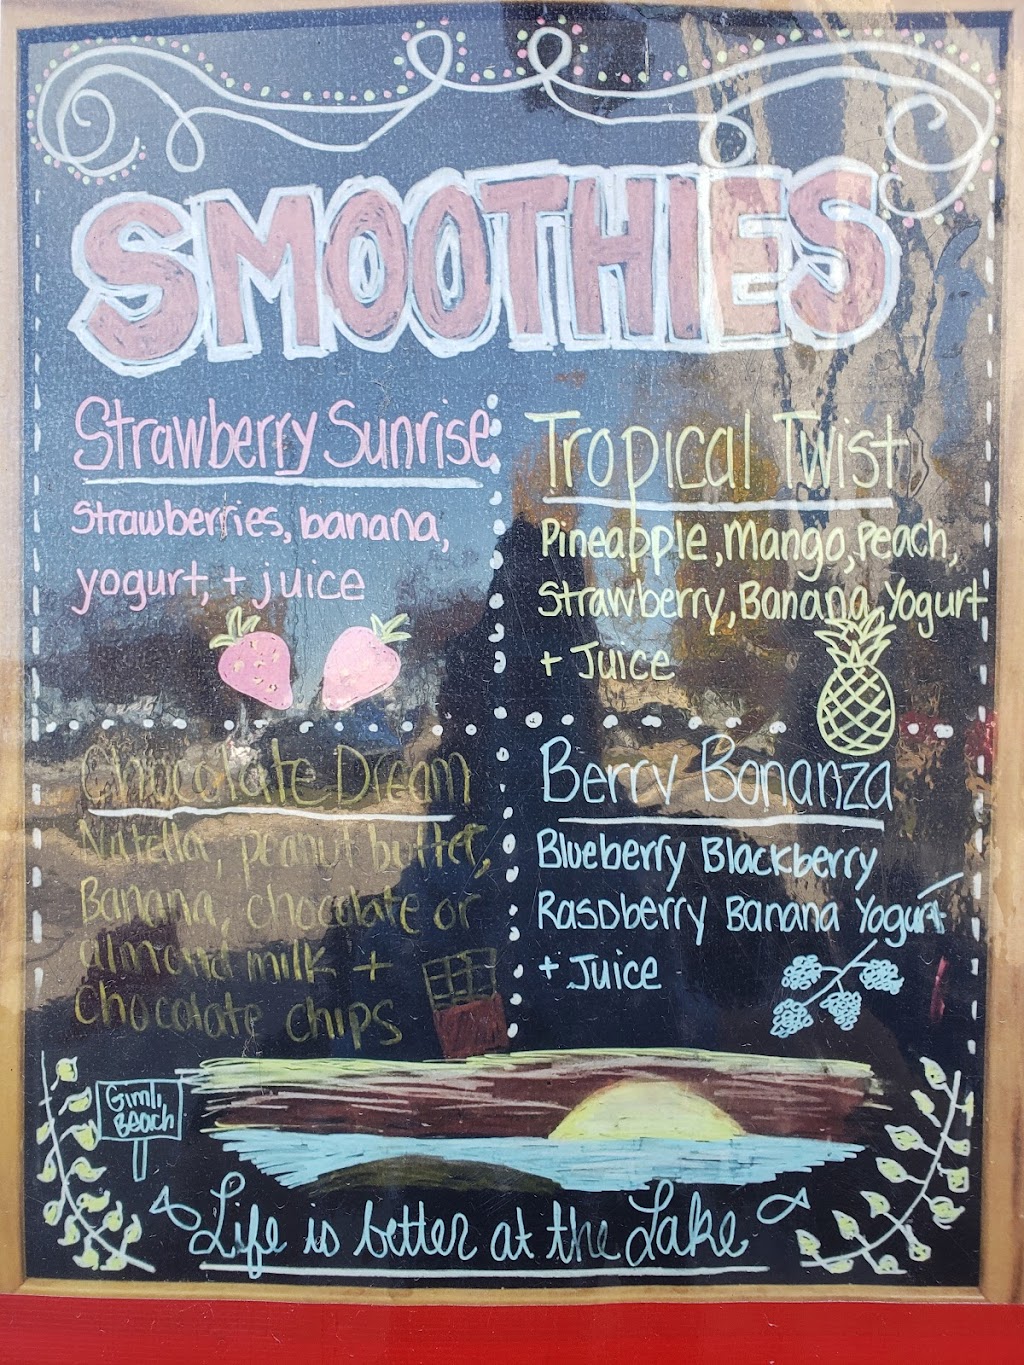 SMOOTHIES
Strawberry Sunrise
Strawberries, banana,
yogurt, + juice
Tropical Twist
Pineapple, Mango, Peach,
Strawberry, Banana, Yogurt
+ Juice
Chocolate Dream
Nutella, peanut butter,
Banana, chocolate or
almond milk +
chocolate chips
Berry Bonanza
Blueberry Blackberry
Raspberry Banana Yogurt
+ Juice
Gimli
Beach
Life is better at the Lake